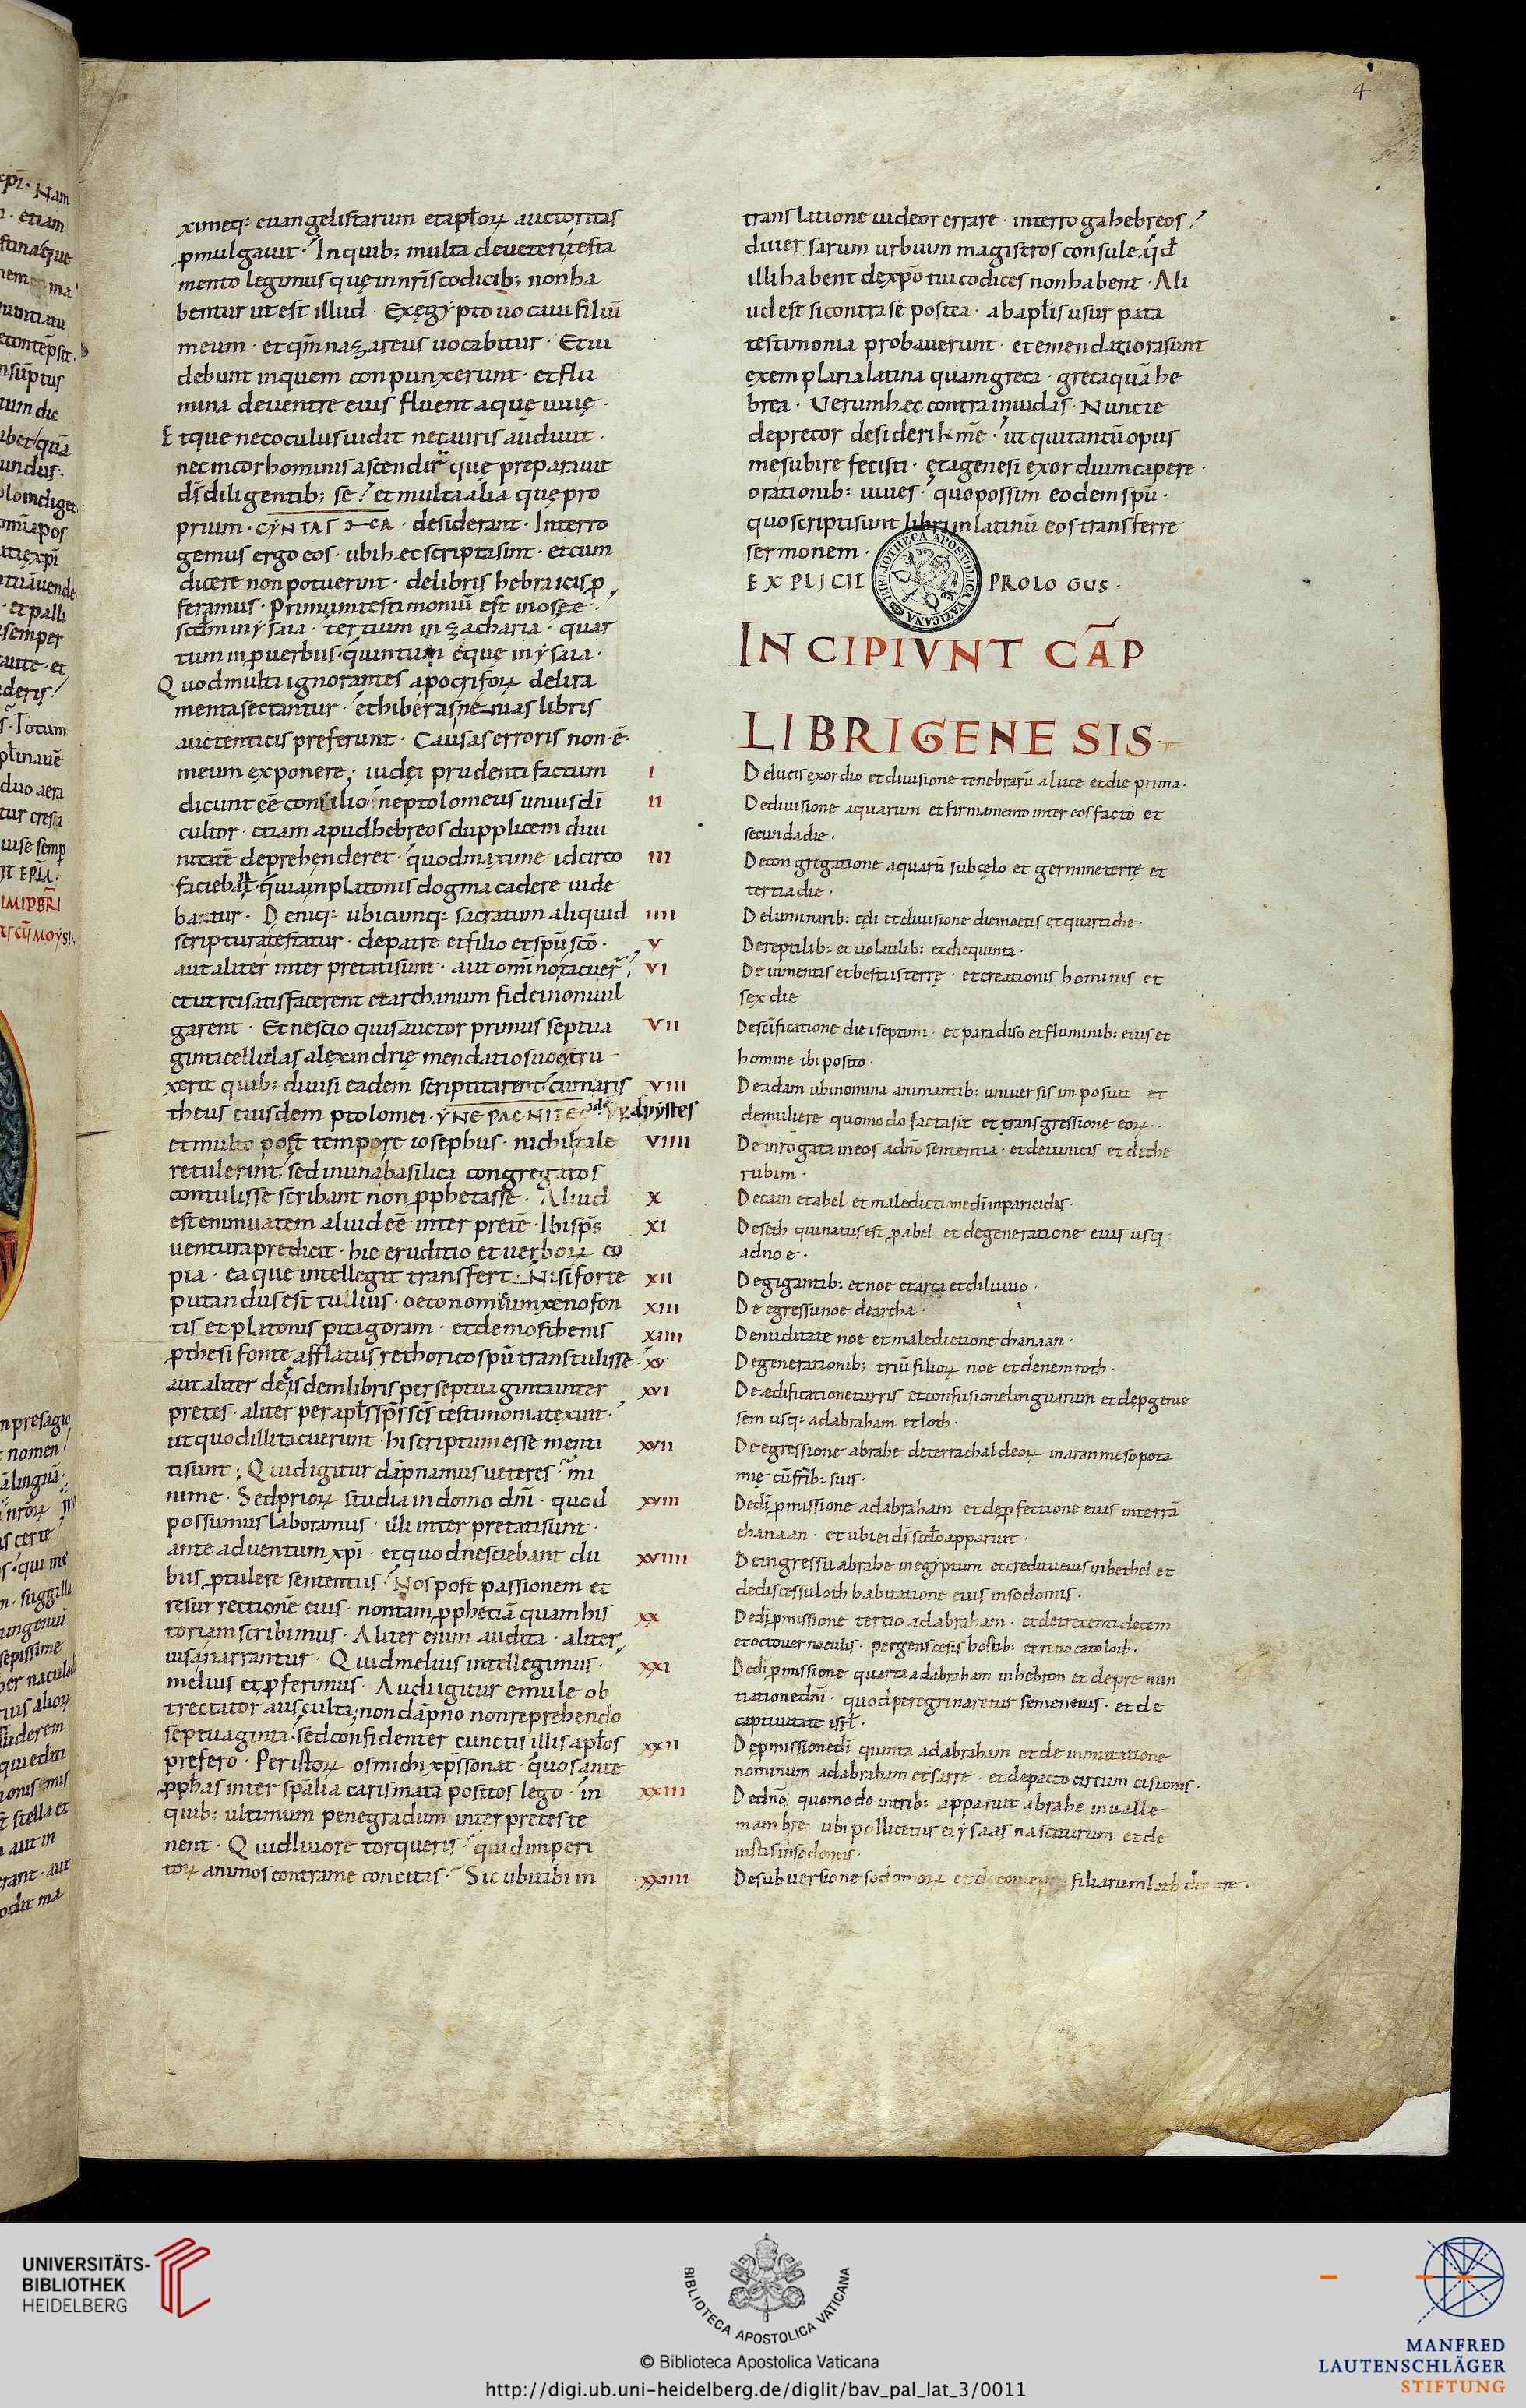 4
ximeq: euangelistarum et aptorꝝ auctoritas
ꝓmulgauit. In quib; multa de ueteri testa
mento legimus quę in nr̄is codicib; non ha
bentur ut est illud. Ex ęgypto uocaui filiū
meum. et qm̄ nazareus uocabitur. Et ui
debunt in quem conpunxerunt. et flu
mina de uentre eius fluent aquę uiuę.
Et que nec oculus uidit nec auris audiuit.
nec in cor hominis ascendit que preparauit
ds̄ diligentib; se. et multa alia quę pro
prium. desiderant. Interro
gemus ergo eos. ubi hec scripta sint. et cum
dicere non potuerint. de libris hebraicis ꝓ
feramus. Primum testimoniū est in osee.
scd̄m in ysaia. tertium in zacharia. quar
tum in ꝓuerbiis. quintum eque in ysaia.
Quod multi ignorantes apocrifoꝝ delira
menta sectantur. et hiberas nenias libris
auctenticis preferunt. Causas erroris non ē
meum exponere; iudęi prudenti factum
dicunt eē consilio ne ptolomeus unius dī
cultor. etiam apud hebręos dupplicem diui
nitatē deprehenderet. quod maxime idcirco
faciebat. quia in platonis dogma cadere uide
batur. Deniq: ubicumq: sacratum aliquid
scriptura testatur. de patre et filio et spū scō.
aut aliter interpretati sunt. aut omnino tacuer̄
et ut regi satisfacerent et archanum fidei non uul
garent. Et nescio quis auctor primus septua
ginta cellulas alexandrię mendatio suo extru
xerit quib; diuisi eadem scriptitarent. cum aris
theus eiusdem ptolomei.
et multo post tempore iosephus. nichil tale
retulerint. sed in una basilica congregatos
contulisse scribant non ꝓphetasse. Aliud
est enim uatem aliud eē interpretē. Ibi sp̄s
uentura predicit. hic eruditio et uerboꝝ co
pia. ea que intellegit transfert. Nisi forte
putandus est tullius. oeconomicum xenofon
tis et platonis pitagoram. et demosthenis
ꝓ thesifonte afflatus rethorico spū transtulisse.
aut aliter de eisdem libris per septuaginta inter
pretes. aliter per aptos sp̄s scs̄ testimonia texuit.
ut quod illi tacuerunt hi scriptum esse menti
ti sunt; Quid igitur dāpnamus ueteres mi
nime. Sed prioꝝ studia in domo dn̄i. quod
possumus laboramus. illi interpretati sunt.
ante aduentum xp̄i. et quod nesciebant du
biis ꝓtulere sententiis. Nos post passionem et
resurrectione eius. non tam ꝓphetiā quam his
toriam scribimus. Aliter enim audita. aliter
uisa narrantur. Quid melius intellegimus.
melius et ꝓferimus. Audi igitur emule ob
trectator ausculta; non dāpno non reprehendo
septuaginta. sed confidenter cunctis illis aptos
prefero. Per istoꝝ os michi xp̄s sonat. quos ante
ꝓphas inter spālia carismata positos lego. in
quib; ultimum pene gradum interpretes te
nent. Quid liuore torqueris. quid imperi
toꝝ animos contra me concitas. Sicubi tibi in
translatione uideor errare. interroga hebreos.
diuersarum urbium magistros consule. qd
illi habent de xp̄o tui codices non habent. Ali
ud est si contra se postea. ab aptis usurpata
testimonia probauerunt. et emendatiora sunt
exemplaria latina quam greca. greca quā he
brea. Verum hec contra inuidas. Nunc te
deprecor desideri kme. ut qui tantū opus
me subire fecisti. et a genesi exordium capere.
orationib: iuues. quo possim eodem spū.
quo scripti sunt libri in latinū eos transferre
sermonem.
EXPLICIT PROLOGUS.
INCIPIVNT CAP
LIBRI GENESIS
I De lucis exordio et diuisione tenebrarū a luce et die prima.
II De diuisione aquarum et firmamento inter eos facto et
secunda die.
III De congregatione aquarū sub cęlo et germine terrę et
tertia die.
IIII De luminarib: cęli et diuisione diei noctis et quarti die.
V De reptilib: et uolatilib: et die quinta.
VI De iumentis et bestiis terrę. et creationis hominis et
sex die
VII De scīficatione diei septimi. et paradiso et fluminib: eius et
homine ibi posito.
VIII De adam ubi nomina animantib: uniuersis imposuit et
de muliere quomodo facta sit et transgressione eoꝝ.
VIIII De inrogata in eos a dn̄o sententia. et de tunicis et de che
rubim.
X De cain et abel et maledictione dī in paricidas.
XI De seth qui natus est ꝓ abel et de generatione eius usq:
ad noe.
XII De gigantib: et noe et arca et diluuio.
XIII De egressu noe de archa.
XIIII De nuditate noe et maledictione chanaan.
XV De generationib; triū filioꝝ noe et de nemroth.
XVI De ædificatione turris et confusione linguarum et de ꝓgenie
sem usq: ad abraham et loth.
XVII De egressione abrahe de terra chaldeoꝝ in aran mesopota
mię cū fr̄ib: suis.
XVIII De dī ꝓmissione ad abraham et de ꝓfectione eius in terrā
chanaan. et ubi ei ds̄ scdo apparuit.
XVIIII De ingressu abrahe in egyptum et reditu eius in bethel et
de discessu loth habitatione eius in sodomis.
XX De dī ꝓmissione tertio ad abraham. et de trecenti decem
et octo uernaculis. pergens cesis hostib: et reuocato loth.
XXI De dī ꝓmissione quarta ad abraham in hebron et de prenun
tiatione dn̄i. quod peregrinaretur semen eius. et de
captiuitate isrł.
XXII De ꝓmissione dī quinta ad abraham et de inmutatione
nominum ad abraham et sarre. et de pacto circumcisionis.
XXIII De dn̄o quomodo in trib: apparuit abrahe in ualle
mambre ubi pollicetur ei ysaas nasciturum et de
iustis in sodomis.
XXIIII De subuersione sodomoꝝ et de filiarum loth
BIBLIOTHECA APOSTOLICA VATICANA
UNIVERSITÄTS-
BIBLIOTHEK
HEIDELBERG
BIBLIOTECA APOSTOLICA VATICANA
© Biblioteca Apostolica Vaticana
http://digi.ub.uni-heidelberg.de/diglit/bav_pal_lat_3/0011
MANFRED
LAUTENSCHLÄGER
STIFTUNG